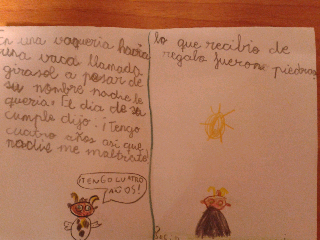 En una vaqueria había
una vaca llamada
girasol a pesar de
su nombre nadie la
queria. El dia de su
cumple dijo: ¡Tengo
cuatro años asi que
nadie me maltrate!
¡TENGO CUATRO
AÑOS!
lo que recibio de
regalo fueron piedras